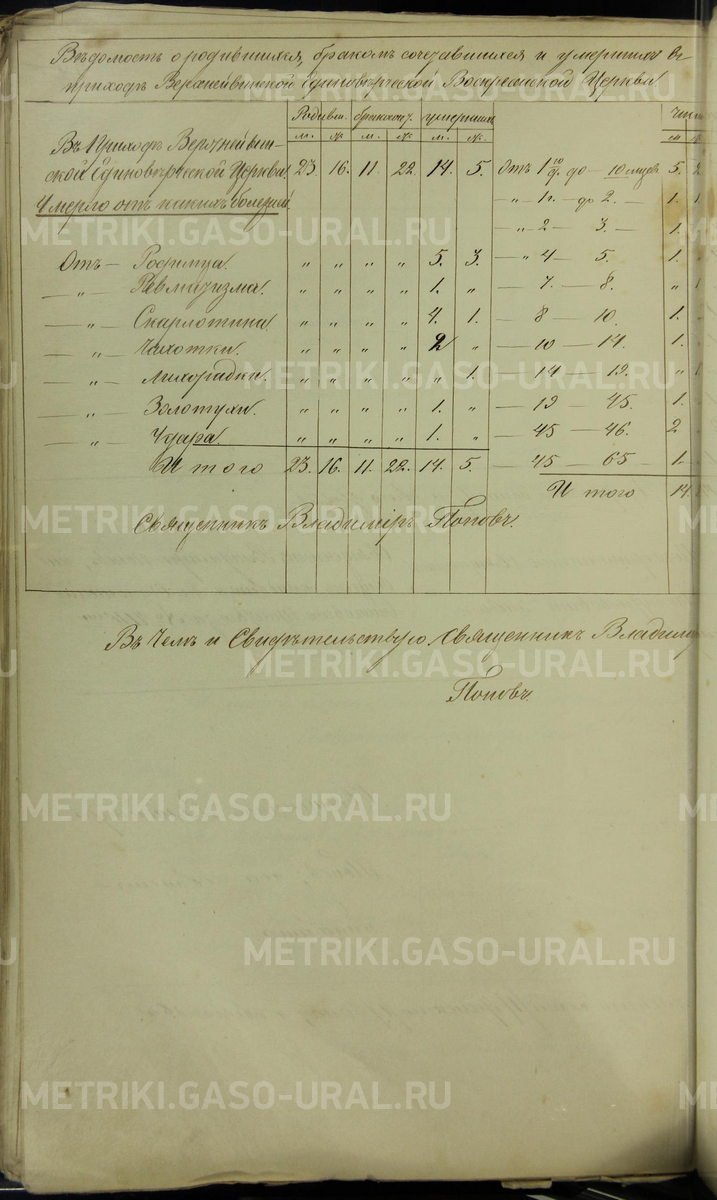 Вѣдомость о родившихся, бракомъ сочетавшихся и умершихъ въ
приходѣ Верхнейвинской Единовѣрческой Воскресенской Церкви
Родивш. бракосоч. умершихъ Числ
м. ж. м. ж. м. ж. м ж
Въ Приходѣ Верхнейвин-
ской Единовѣрческой Церкви 23. 16. 11. 22. 14. 5. Отъ 1 до — 10 5. 2
Умерло отъ какихъ болезней — „ — 1 г. — до 2. — 1. 1
— „ — 2 — 3. — 1.
Отъ — Родимца. „ „ „ „ 5. 3. — „ 4 — 5. 1.
— „ — Ревматизма. „ „ „ „ 1. „ — 7. — 8. „
— „ — Скарлотина. „ „ „ „ 4. 1. — 8 — 10. 1.
— „ — Чахотки. „ „ „ „ 2 „ — 10 — 14. 1.
— „ — Лихорадки. „ „ „ „ „ 1. — 14 — 19. „ 1
— „ — Золотухи. „ „ „ „ 1. „ — 19 — 45. 1.
— „ — Удара. „ „ „ „ 1. „ — 45 — 46. 2
Итого 23. 16. 11. 22. 14. 5. — 45 — 65 — 1.
Итого 14.
Священникъ Владимiръ Поповъ.
Въ Чемъ и Свидѣтельствую Священникъ Владими
Поповъ.
METRIKI.GASO-URAL.RU